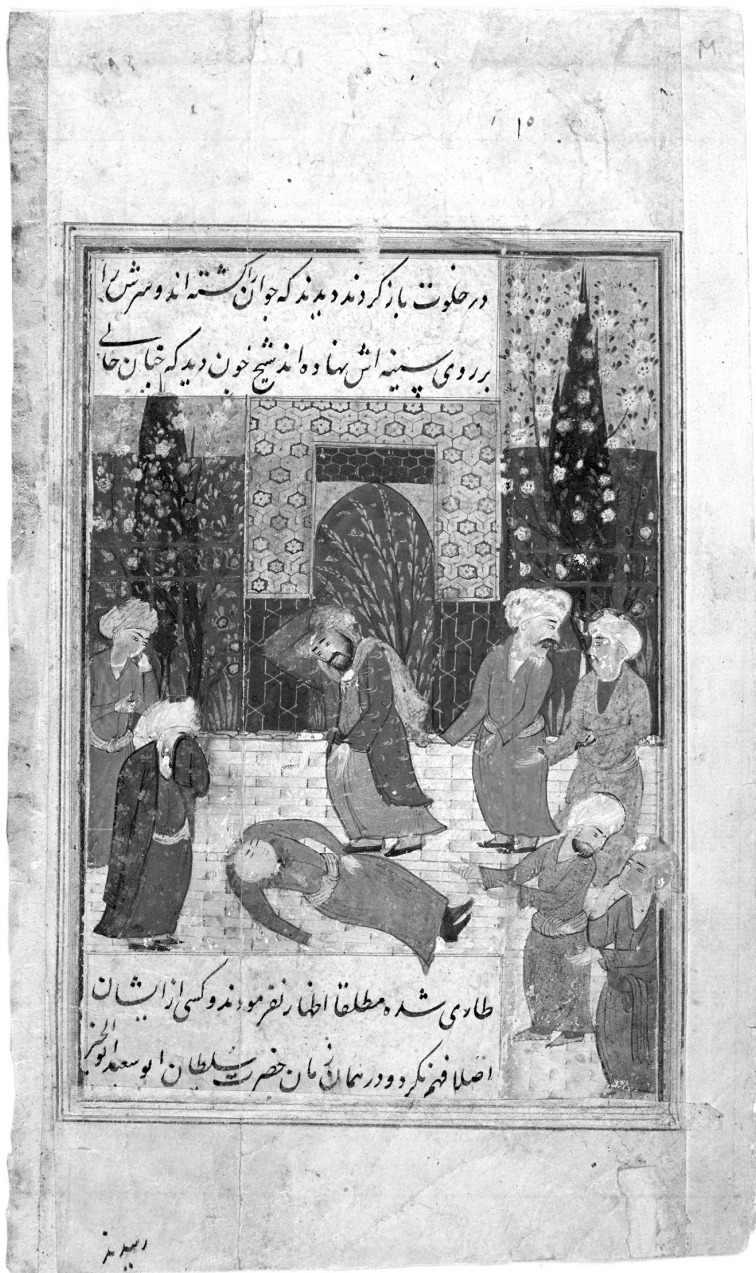 M.
۱۵
در خلوت باز کردند دیدند که جوان را کشته اند و سرش را
بر روی سینه اش نهاده اند شیخ خون دید که خیان حالی
طاری شده مطلقا اظهار نفرمودند و کسی از ایشان
اصلا فهم نکرد و در همان زمان حضرت سلطان ابو سعید ابو الخیر
رسیدند